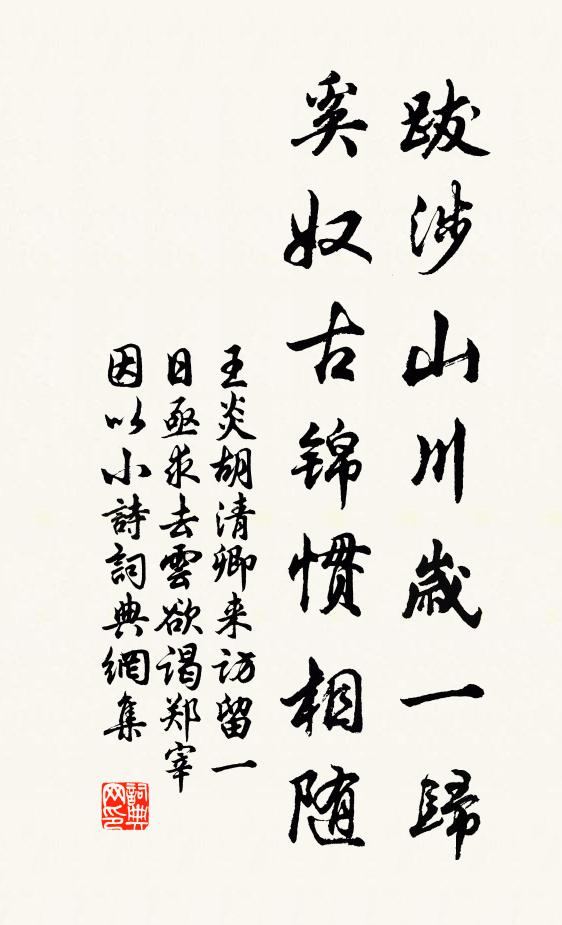 跋涉山川歲一歸
奚奴古錦慣相随
王炎胡清卿来访留一
日亟求去雲欲谒郑宰
因以小詩詞典網集
詞典網印